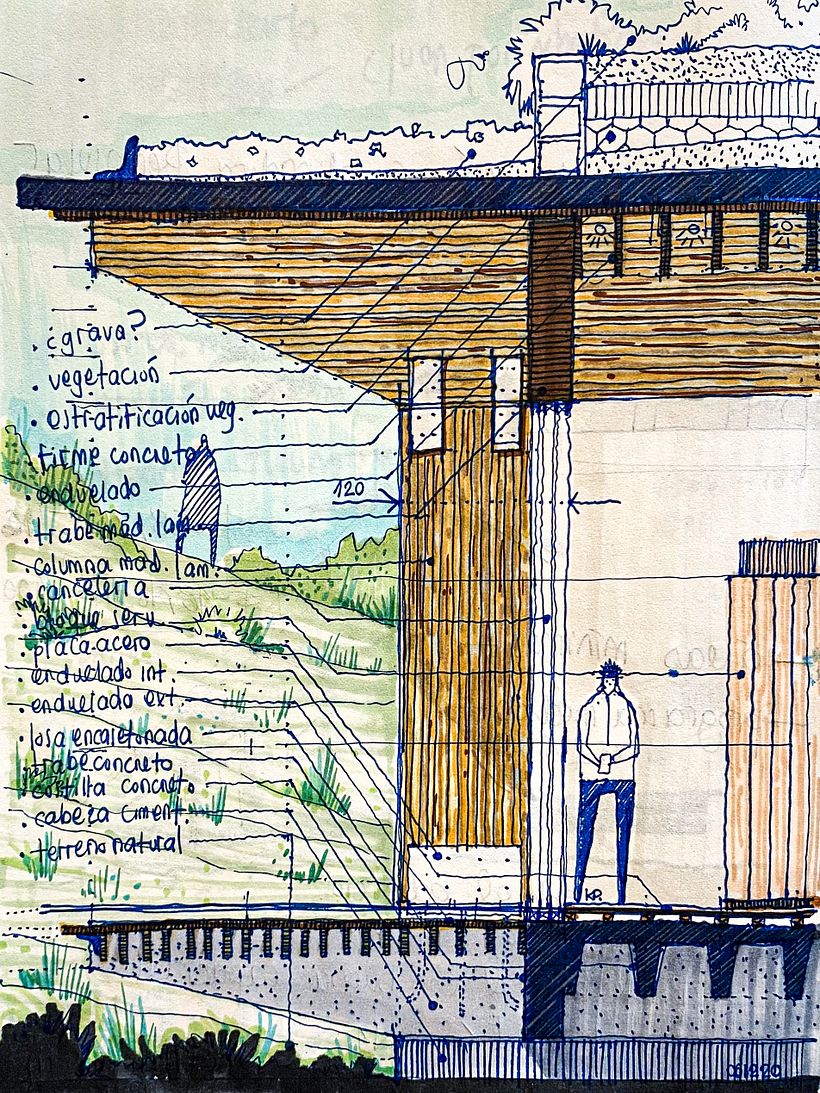 ¿grava?
vegetación
estratificación veg.
firme concreto
enduelado
120
trabe mad. lam
columna mad. lam.
cancelería
bloque serv.
placa acero
enduelado int.
enduelado ext.
losa encasetonada
trabe concreto
costilla concreto
cabeza ciment.
terreno natural
KP.